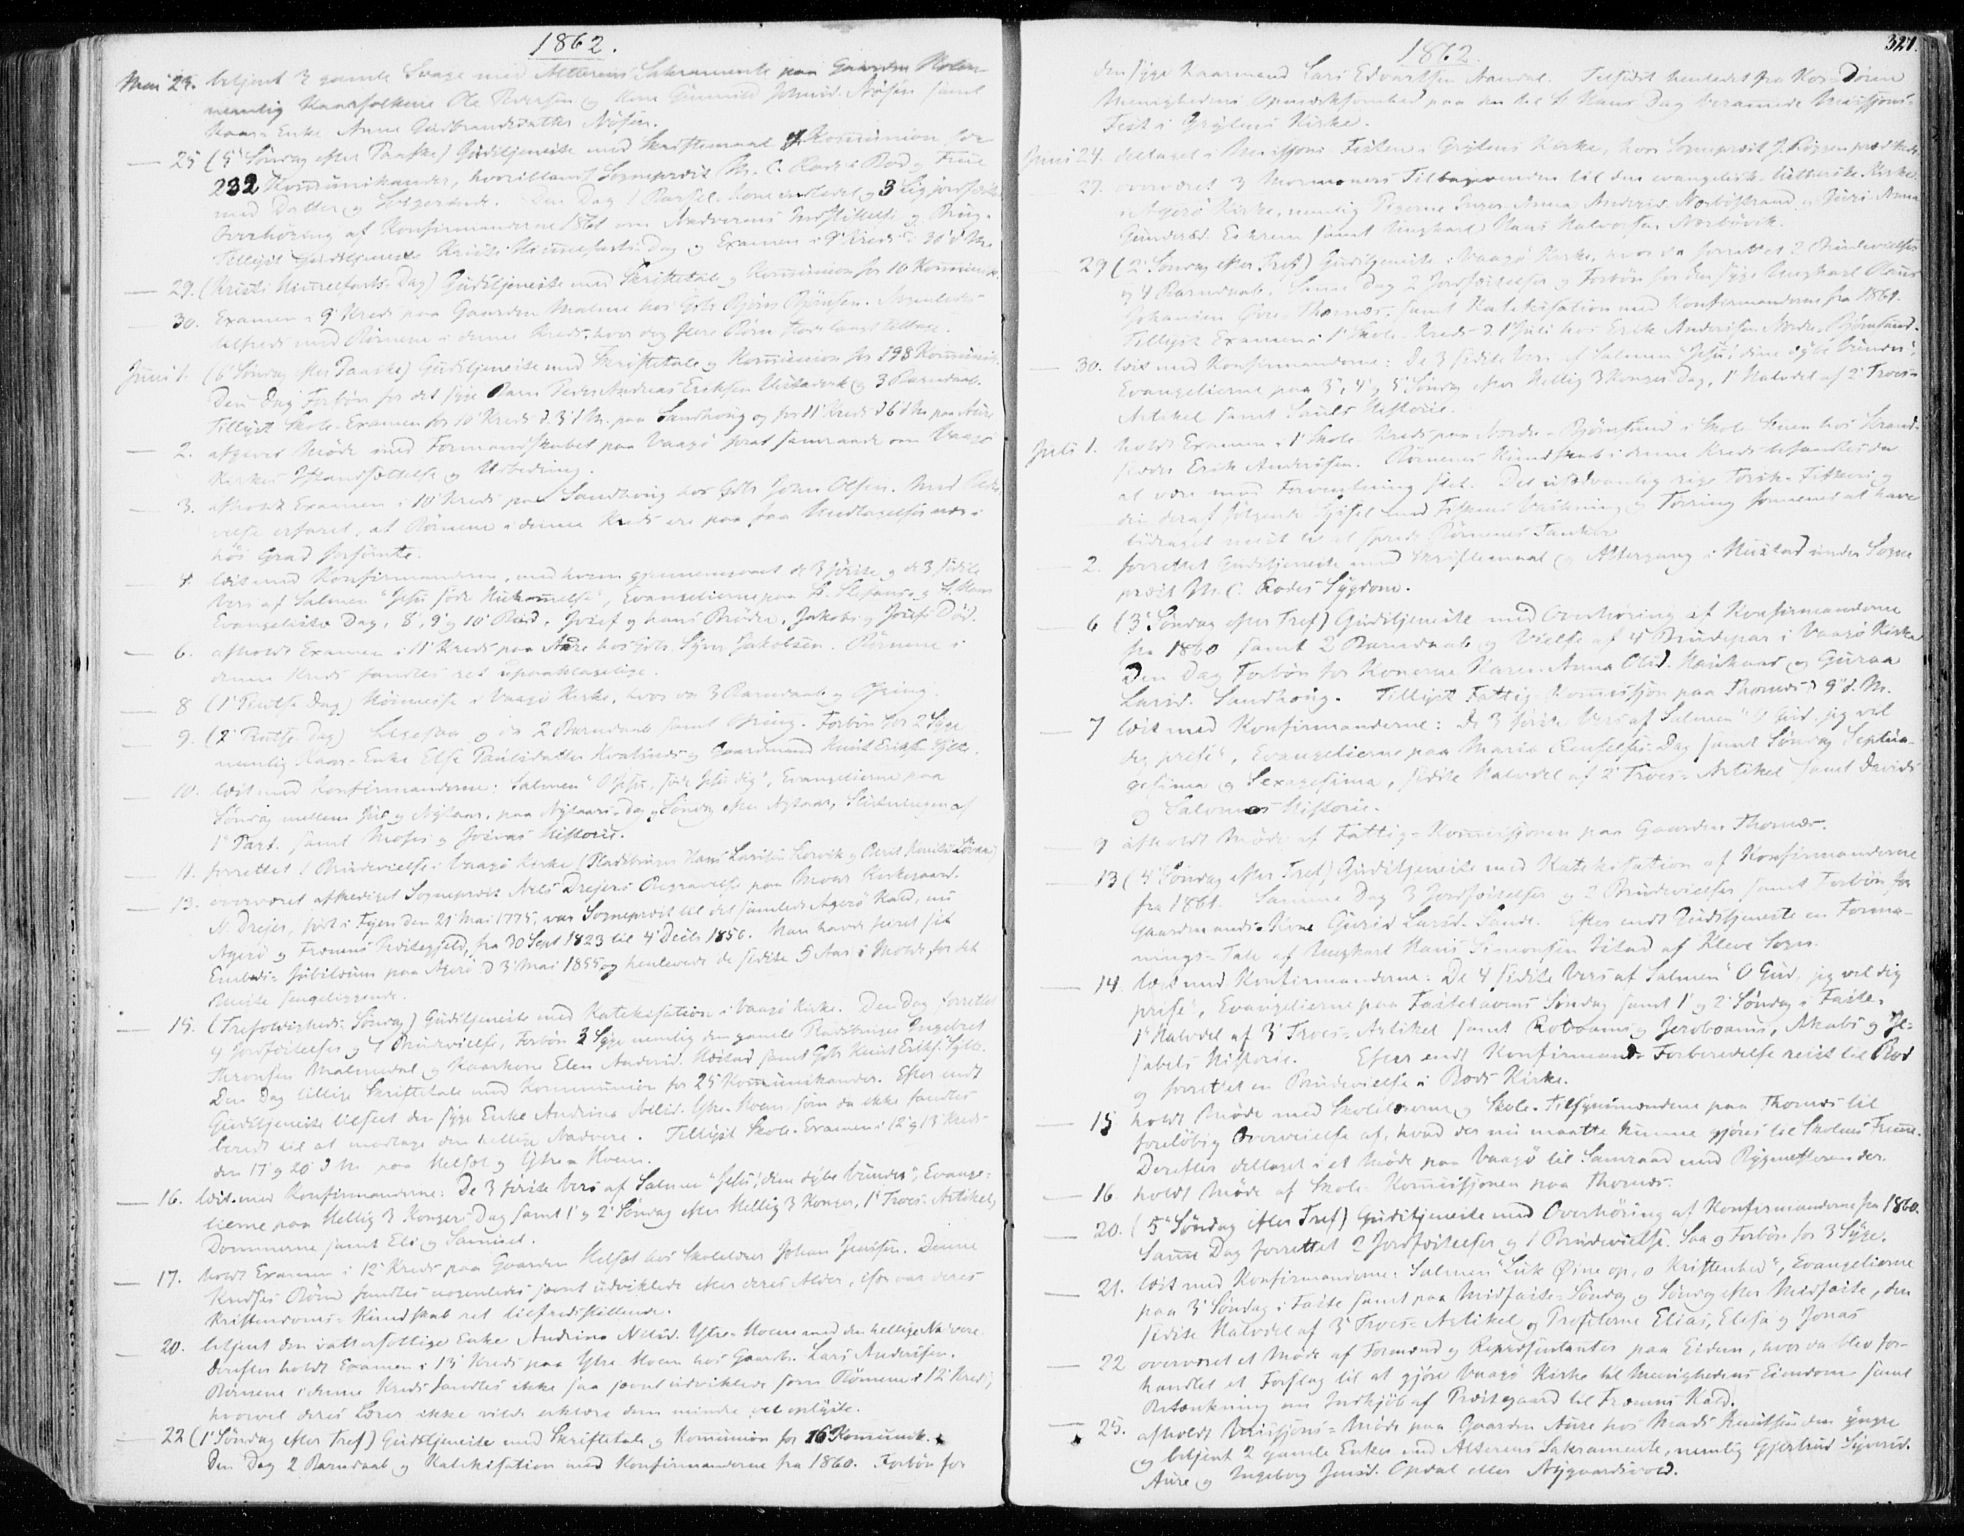 1862.
Mai 23. betjent 3 gamle Svage med Alterens Sakramente paa Gaarden
nemlig Kaarfolkene Ole Pedersen og Kone Gunnild Johnsd. Nøsen samt
Kaar-Enke Anne Gudbrandsdatter Nøsen.
— 25 (5' Søndag efter Paaske) Gudstjeneste med Skriftemaal og Kommunion for
232 Kommunikanter, hvoriblandt Sogneprest M. C. Rode i Bod og Frue
med Datter og . Den Dag 1 Barsel-Kone indledet og 3 Lig jordfæstede
Overhøring af Konfirmanderne 1861 om Nadverens Indstiftelse og Brug.
Tillyst Gudstjeneste Kristi Himmelfarts Dag og Examen i 9' Kreds d. 30' d. M.
— 29. (Kristi Himmelfarts-Dag) Gudstjeneste med Skriftetale og Kommunion for 10
— 30. Examen i 9' Kreds paa Gaarden Malme hos Gbr. Bjørn Bjørnsen. Nogenledes
tilfreds med Børnene i denne Kreds, hvor dog flere Børn stode langt tilbage.
Juni 1. (6' Søndag efter Paaske) Gudstjeneste med Skriftetale og Kommunion for 198
Den Dag Forbøn for det syge Barn Peder Andreas Eriksen og 3 Barndaab.
Tillyst Skole-Examen for 10' Kreds d. 3' d. M. paa Sandhoug og for 11' Kreds d. 6' d. M. paa Aure
— 2. afgivet Møde med Formandskabet paa Vaagø samraade om Vaagø
Kirkes Istandsættelse og Udbedring.
— 3. afholdt Examen i 10' Kreds paa Sandhoug hos Gbr. John Olsen. Med
erfaret, at Børnene i denne Kreds ere paa faa Undtagelser nær i
høi Grad forsømte.
— 4. læst med Konfirmanderne, med hvem gjennemgaaet de 3 første og de 3 sidste
Vers af Salmen "Jesu søde Hukommelse", Evangelierne paa St. Stefans og St. Hans
Evangelists Dag, 8', 9' og 10' Bud, Josef og hans Brødre, Jakobs og Josefs Død.
— 6. afholdt Examen i 11' Kreds paa Aure hos Gbr. Syver Jakobsen. Børnene i
denne Kreds fandtes ret upaaklagelige.
— 8 (1' Pintse Dag) Høimesse i Vaagø Kirke, hvor da 3 Barndaab og Ofring.
— 9. (2' Pintse Dag) Ligesaa og da 2 Barndaab samt Ofring. Forbøn for 2 Syge
nemlig Kaar-Enke Else Paulsdatter og Gaardmand Knut Eriksen
— 10. læst med Konfirmanderne: Salmen "O Jesu, søde Jesu dig", Evangelierne paa
Søndag mellem Jul og Nytaar, paa Nytaars-Dag, Søndag efter Nytaar, Slutningen af
1' Part. samt Moses og Josvas Historie.
— 11. forrettet 1 Brudevielse i Vaagø Kirke (Pladsbruger Hans Larsen og Berit
— 13. overværet afskediget Sogneprest Niels Drejers Begravelse paa Molde Kirkegaard.
N. Drejer, født i Fyen den 21' Mai 1775, var Sogneprest til det samlede Agerø Kald, nu
Agerø og Frænens Prestegjeld, fra 30 Sept 1823 til 4' Decbr 1856. Han havde feiret sit
Embeds-Jubilæum paa Agerø d 3' Mai 1855 og henlevede de sidste 5 Aar i Molde for det
meste sengeliggende.
— 15. (Trefoldigheds-Søndag) Gudstjeneste med Katekisation i Vaagø Kirke. Den Dag forrettet
4 Jordfæstelser og 1 Brudevielse, Forbøn 3 Syge nemlig den gamle Pladsbruger Engebret
Thronsen Malmedal og Kaarkone Elen Andersd. Hæstad samt Gbr. Knut Eriks.
Den Dag tillige Skriftetale med Kommunion for 25 Kommunikanter. Efter endt
Gudstjeneste tilseet den syge Enke Andrina Nilsd. Ytre-Hoem, som da ikke fandtes
beredt til at modtage den hellige Nadvere. Tillyst Skole-Examen i 12' og 13' Kreds
den 17' og 20' d. M. paa Helset og Ytre Hoem.
— 16. læst med Konfirmanderne: De 3 første Vers af Salmen "Jesu, dine dybe Vunder", Evange-
lierne paa Hellig 3 Konger-Dag samt 1' og 2' Søndag efter Hellig 3 Konger, 1' Troes-Artikel,
Dommerne samt Eli og Samuel.
— 17. holdt Examen i 12' Kreds paa Gaarden Helset hos Skolelærer Johan Jensen. Denne
Kredses Børn fandtes nogenledes jævnt udviklede efter deres Alder, ligesom deres
Kristendoms-Kundskab ret tilfredsstillende.
— 20. betjent den vattersottige Enke Andrina Nilsd. Ytre-Hoem med den hellige Nadvere.
Derefter holdt Examen i 13' Kreds paa Ytre Hoem hos Gaardb. Lars Andersen.
Børnene i denne Kreds fandtes ikke saa jævnt udviklede som Børnene i 12' Kreds,
hvorvel deres Lærer ikke vilde erklære dem mindre vel oplyste.
— 22 (1' Søndag efter Tref.) Gudstjeneste med Skriftetale og Kommunion for 16 Kommunik.
Den Dag 2 Barndaab og Katekisation med Konfirmanderne fra 1860. Forbøn for
1862.
327.
den syge Kaarmand Lars Edvartsen Aandal. Tilsidst henledet fra Kor-Døren
Menighedens Opmærksomhed paa den til St. Hans Dag berammede Missions-
Fest i Grytens Kirke.
Juni 24. deltaget i Missions-Festen i Grytens Kirke, hvor Sogneprest J. Riggen prædikede.
27. overværet 3 Mormoners Tilbagevenden til den evangelisk-lutherske Kirke
i Agerø Kirke, nemlig Pigerne Inger Anna Andersd. Nærbøstrand, Guri Anna
Gundersd. samt Ungkarl Hans Halvorsen Nærbøvik.
— 29 (2' Søndag efter Tref.) Gudstjeneste i Vaagø Kirke, hvor da forrettet 2 Brudevielser
og 4 Barndaab. Samme Dag 2 Jordfæstelser og Forbøn for den syge Ungkarl Olaus
Johansen Øvre-Thornes, samt Katekisation med Konfirmanderne fra 1861.
Tillyst Examen i 1' Skole-Kreds d. 1' Juli hos Erik Andersen Nordre-Bjørnsund.
— 30. læst med Konfirmanderne: De 3 sidste Vers af Salmen "Jesu, dine dybe Vunder",
Evangelierne paa 3', 4' og 5' Søndag efter Hellig 3 Konger Dag, 1' Halvdel af 2' Troes-
Artikel samt Sauls Historie.
Juli 1. holdt Examen i 1' Skole-Kreds paa Nordre-Bjørnsund i Skole-Stuen hos Strand-
sidder Erik Andersen. Børnenes Kundskab i denne Kreds befandtes da
at være mod Forventning slet. Det usædvanlig rige Torsk-Fiskeri og
den deraf følgende Sysel med Fiskens Virkning og Tørring formenes at have
bidraget mest til at sprede Børnenes Tanker.
— 2. forrettet Gudstjeneste med Skriftemaal og Altergang i Hustad under Sogne
prest M. C. Rodes Sygdom.
— 6 (3' Søndag efter Tref.) Gudstjeneste med Overhøring af Konfirmanderne
fra 1860 samt 2 Barndaab og Vielse af 4 Brudepar i Vaagø Kirke.
Den Dag Forbøn for Konerne Karen Anna Olsd. Haukaas og Guraa
Larsd. Sandhoug. Tillyst Fattig-Kommission paa Thornes d 9' d. M.
— 7 læst med Konfirmanderne: De 3 første Vers af Salmen "O Gud, jeg vil
dig prise", Evangelierne paa Mariæ Renselses-Dag samt Søndag Septua-
gesima og Sexagesima, sidste Halvdel af 2' Troes-Artikel samt Davids
og Salomos Historie.
— 9 afholdt Møde af Fattig-Kommissionen paa Gaarden Thornes.
— 13 (4' Søndag efter Tref.) Gudstjeneste med Katekisation af Konfirmanderne
fra 1861. Samme Dag 3 Jordfæstelser og 2 Brudevielser samt Forbøn for
Gaardmands-Kone Gurid Larsd. Sande. Efter endt Gudstjeneste en Forma-
nings-Tale af Ungkarl Hans Simonsen Istad af Kleve Sogn.
— 14. læst med Konfirmanderne: De 4 sidste Vers af Salmen "O Gud, jeg vil dig
prise", Evangelierne paa Fastelavns Søndag samt 1' og 2' Søndag i Faste,
1' Halvdel af 3' Troes-Artikel samt Roboams og Jeroboams, Akabs og Je-
sabels Historie. Efter endt Konfirmand-Forberedelse reist til Bod
og forrettet en Brudevielse i Bods Kirke.
— 15 holdt Møde med Skolelærerne og Skole-Tilsynsmændene paa Thornes til
foreløbig Overveielse af, hvad der nu maatte kunne gjøres til Skolens Fremme.
Derefter deltaget i et Møde paa Vaagø til Samraad med Bygmesteren der.
— 16. holdt Møde af Skole-Kommissionen paa Thornes.
— 20. (5' Søndag efter Tref) Gudstjeneste med Overhøring af Konfirmanderne fra 1860.
Samme Dag forrettet 2 Jordfæstelser og 1 Brudevielse. Saa og Forbøn for 3 Syge.
— 21. læst med Konfirmanderne: Salmen "Luk Øine op, o Kristenhed", Evangelierne
paa 3' Søndag i Faste samt paa Midfaste-Søndag og Søndag efter Midfaste, den
sidste Halvdel af 3' Troes-Artikel og Profeterne Elias, Elisa og Jonas
— 22 overværet et Møde af Formænd og Repræsentanter paa Eiden, hvor da blev for-
handlet et Forslag til at gjøre Vaagø Kirke til Menighedens Eiendom samt
Betænkning om Indkjøb af Prestegaard til Frænens Kald.
— 25. afholdt Missions-Møde paa Gaarden Aure hos Mads Knutsen den yngre
og betjent 2 gamle Enker med Alterens Sakramente, nemlig Gjertrud Syversd.
Aure og Ingeborg Jensd. Opdal eller Nygaardsvold.